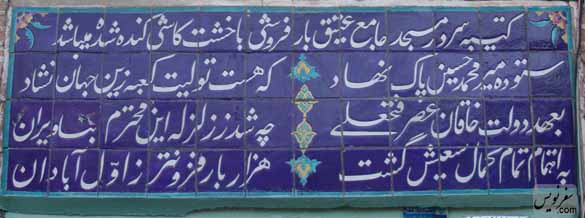 کتیبه سردر مسجد جامع عتیق بارفروشی با خشت کاشی کنده شده میباشد
ستوده میر محمد حسین پاک نهاد که هست تولیت کعبه زین جهان نشاد
بعهد دولت خاقان عصر فتحعلی چه شد ز زلزله این محترم بنا ویران
به اهتمام تمام کمال سعیش گشت هزار بار فزونتر ز اول آبادان
سفرنویس
.com